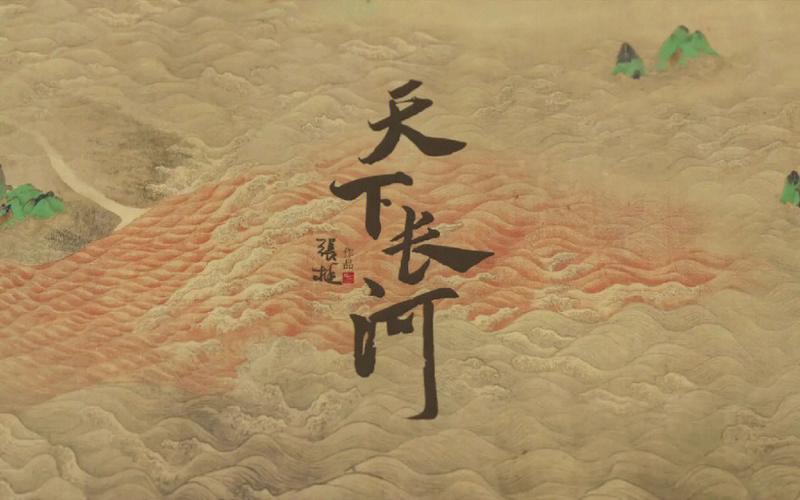 天下长河
张挺
作品